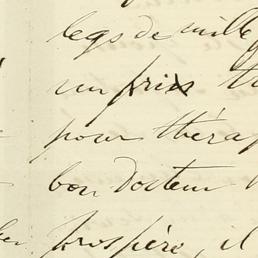 legs de mille
un prix
pour thérap
bon Docteur
prospère, il